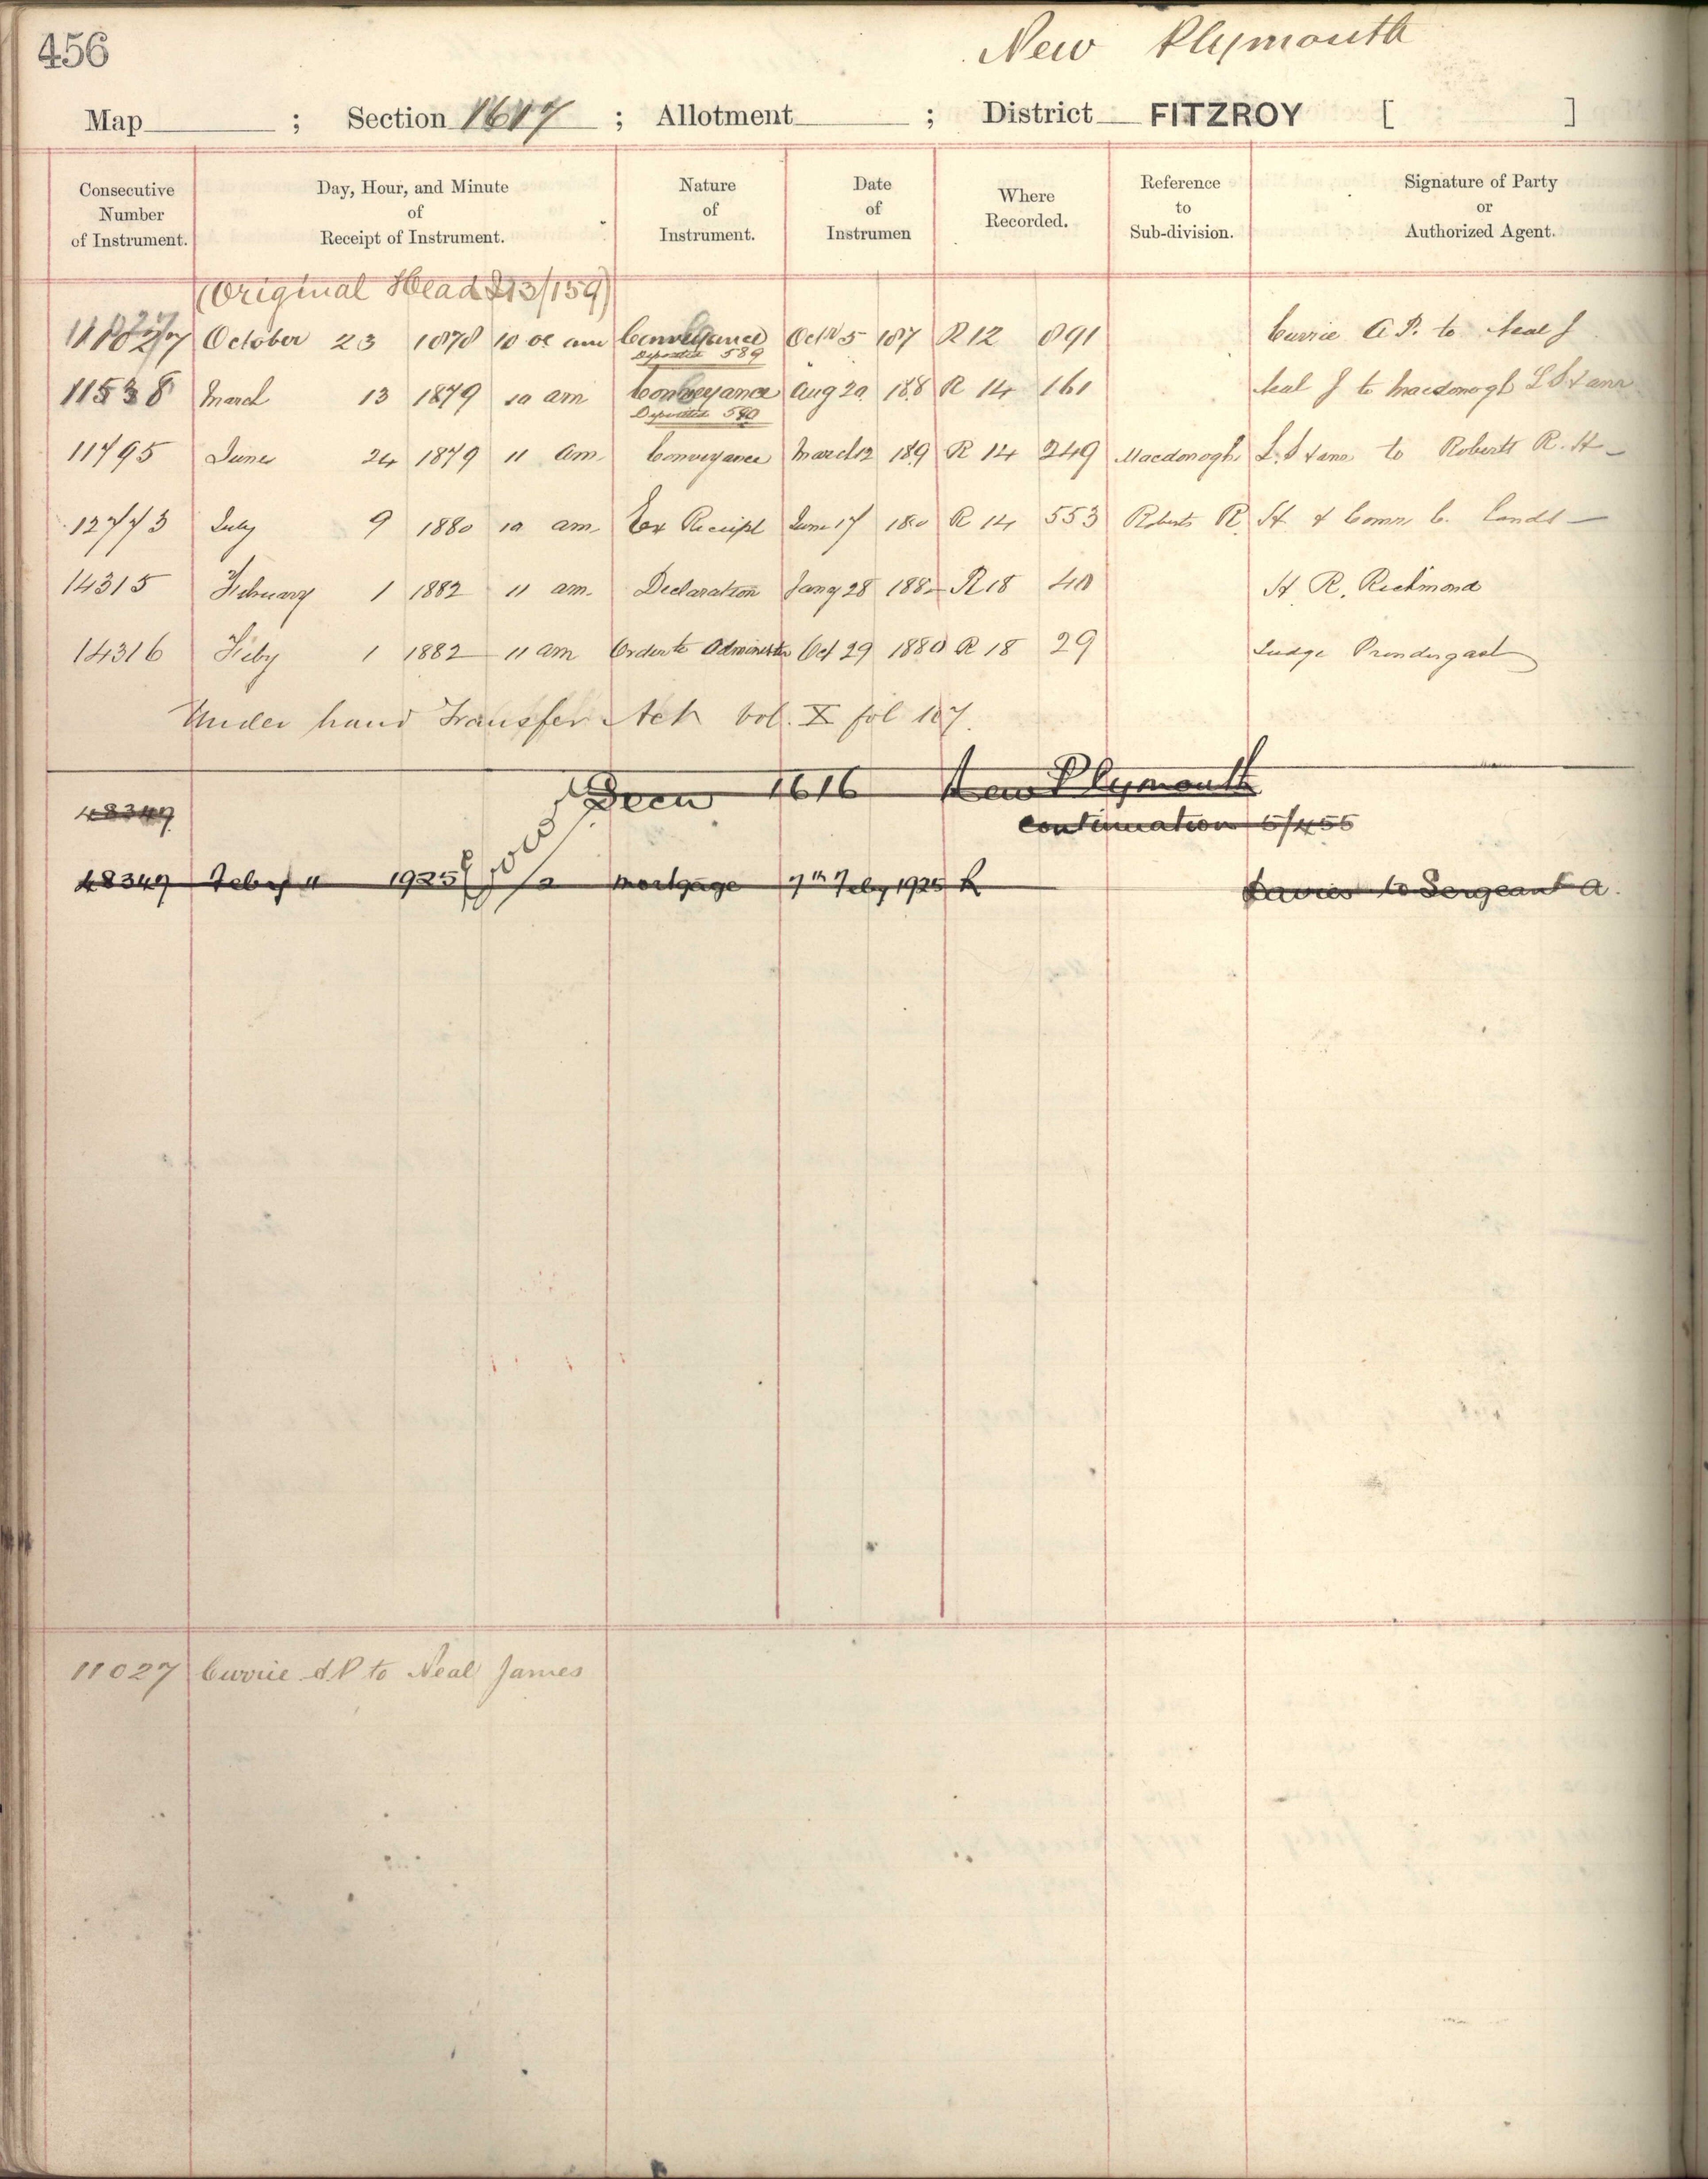 456
New Plymouth
Map ; Section 1617 ; Allotment ; District FITZROY [ ]
Consecutive Number of Instrument. Day, Hour, and Minute of Receipt of Instrument. Nature of Instrument. Date of Instrumen Where Recorded. Reference to Sub-division. Signature of Party or Authorized Agent.
(Original Head 213/159)
11027 October 23 1878 10 am Conveyance Oct 5 187 R 12 891 Currie A P. to Neal J
Deposited 589
11538 March 13 1879 10 am Conveyance Aug 20 188 R 14 161 Neal J to Macdonogh L S & anr
Deposited 590
11795 June 24 1879 11 am Conveyance March 12 189 R 14 249 Macdonogh L. S & anr to Roberts R. H -
12773 July 9 1880 10 am Ex Receipt June 17 180 R 14 553 Roberts R. H & Comr C. Lands -
14315 February 1 1882 11 am Declaration Jany 28 1882 R 18 H. R. Richmond
14316 Feby 1 1882 11 am Order to Administer Oct 29 1880 R 18 29 Judge Prendergast
Under hand Transfer Act Vol. X fol 107.
Secn 1616 New Plymouth
48349
continuation 5/455
48349 Feby 11 1925 Mortgage 7th Feby 1925 R Davies to Sergeant A.
11027 Currie A P to Neal James